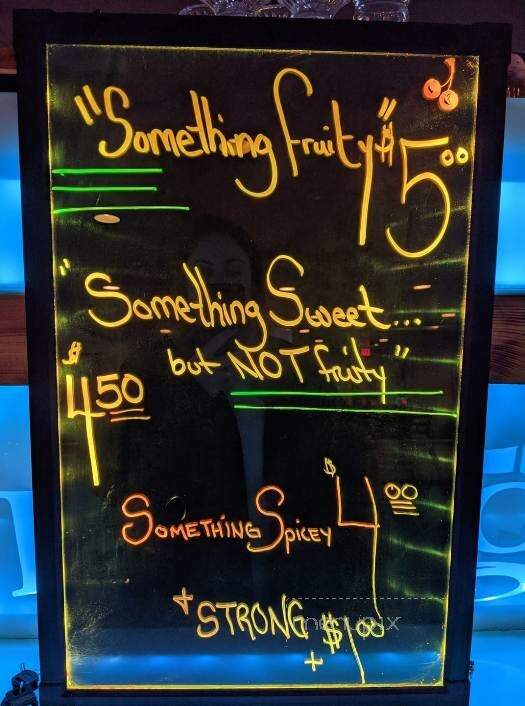 "Something fruity" $5.00
"Something Sweet...
but NOT fruity"
$4.50
SOMETHING SPICEY $4.00
+ STRONG
+ $1.00
menupix